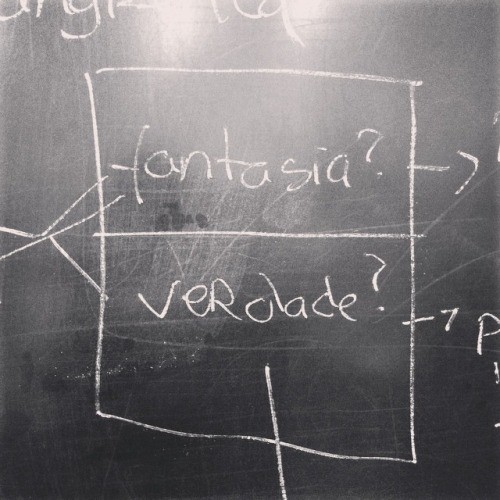 fantasia?
veRdade?